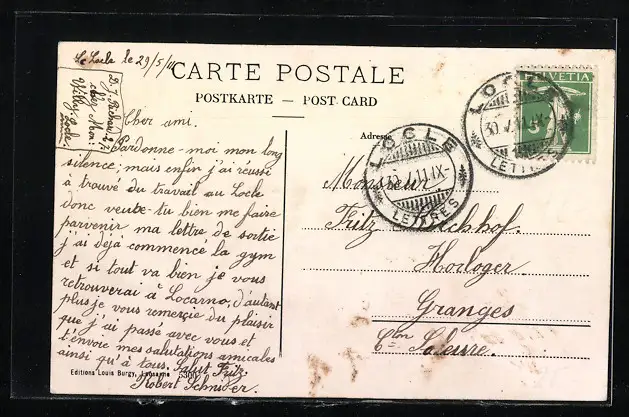 Le Locle le 29/5/11
CARTE POSTALE
POSTKARTE — POST CARD
chez Mr:
Cher ami.
Adresse
Pardonne-moi mon long
silence; mais enfin j'ai réussi
à trouvé du travail au Locle
donc veute-tu bien me faire
parvenir ma lettre de sortie
j'ai déjà commencé la gym
et si tout va bien je vous
retrouverai à Locarno, d'autant
plus je vous remercie du plaisir
que j'ai passé avec vous et
t'envoie mes salutations amicales
ainsi qu'à tous. Salut Fritz.
Robert
Monsieur
Fritz
Horloger
Granges
Cton Soleure.
HELVETIA
5
LOCLE
LETTRES
LOCLE
LETTRES
Editions Louis Burgy, Lausanne 5300